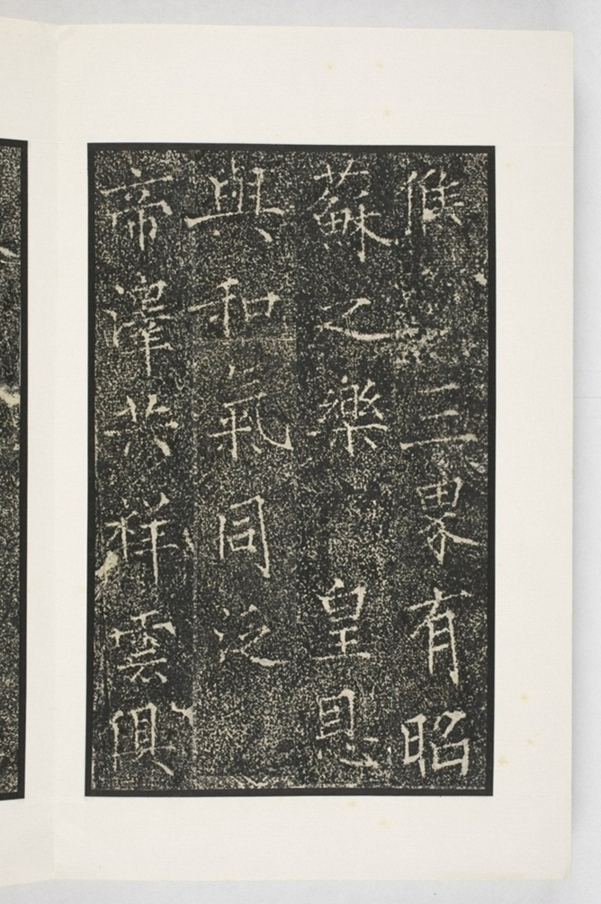 三界有昭
蘇之樂 皇恩
與和氣同泛
帝澤共祥雲俱